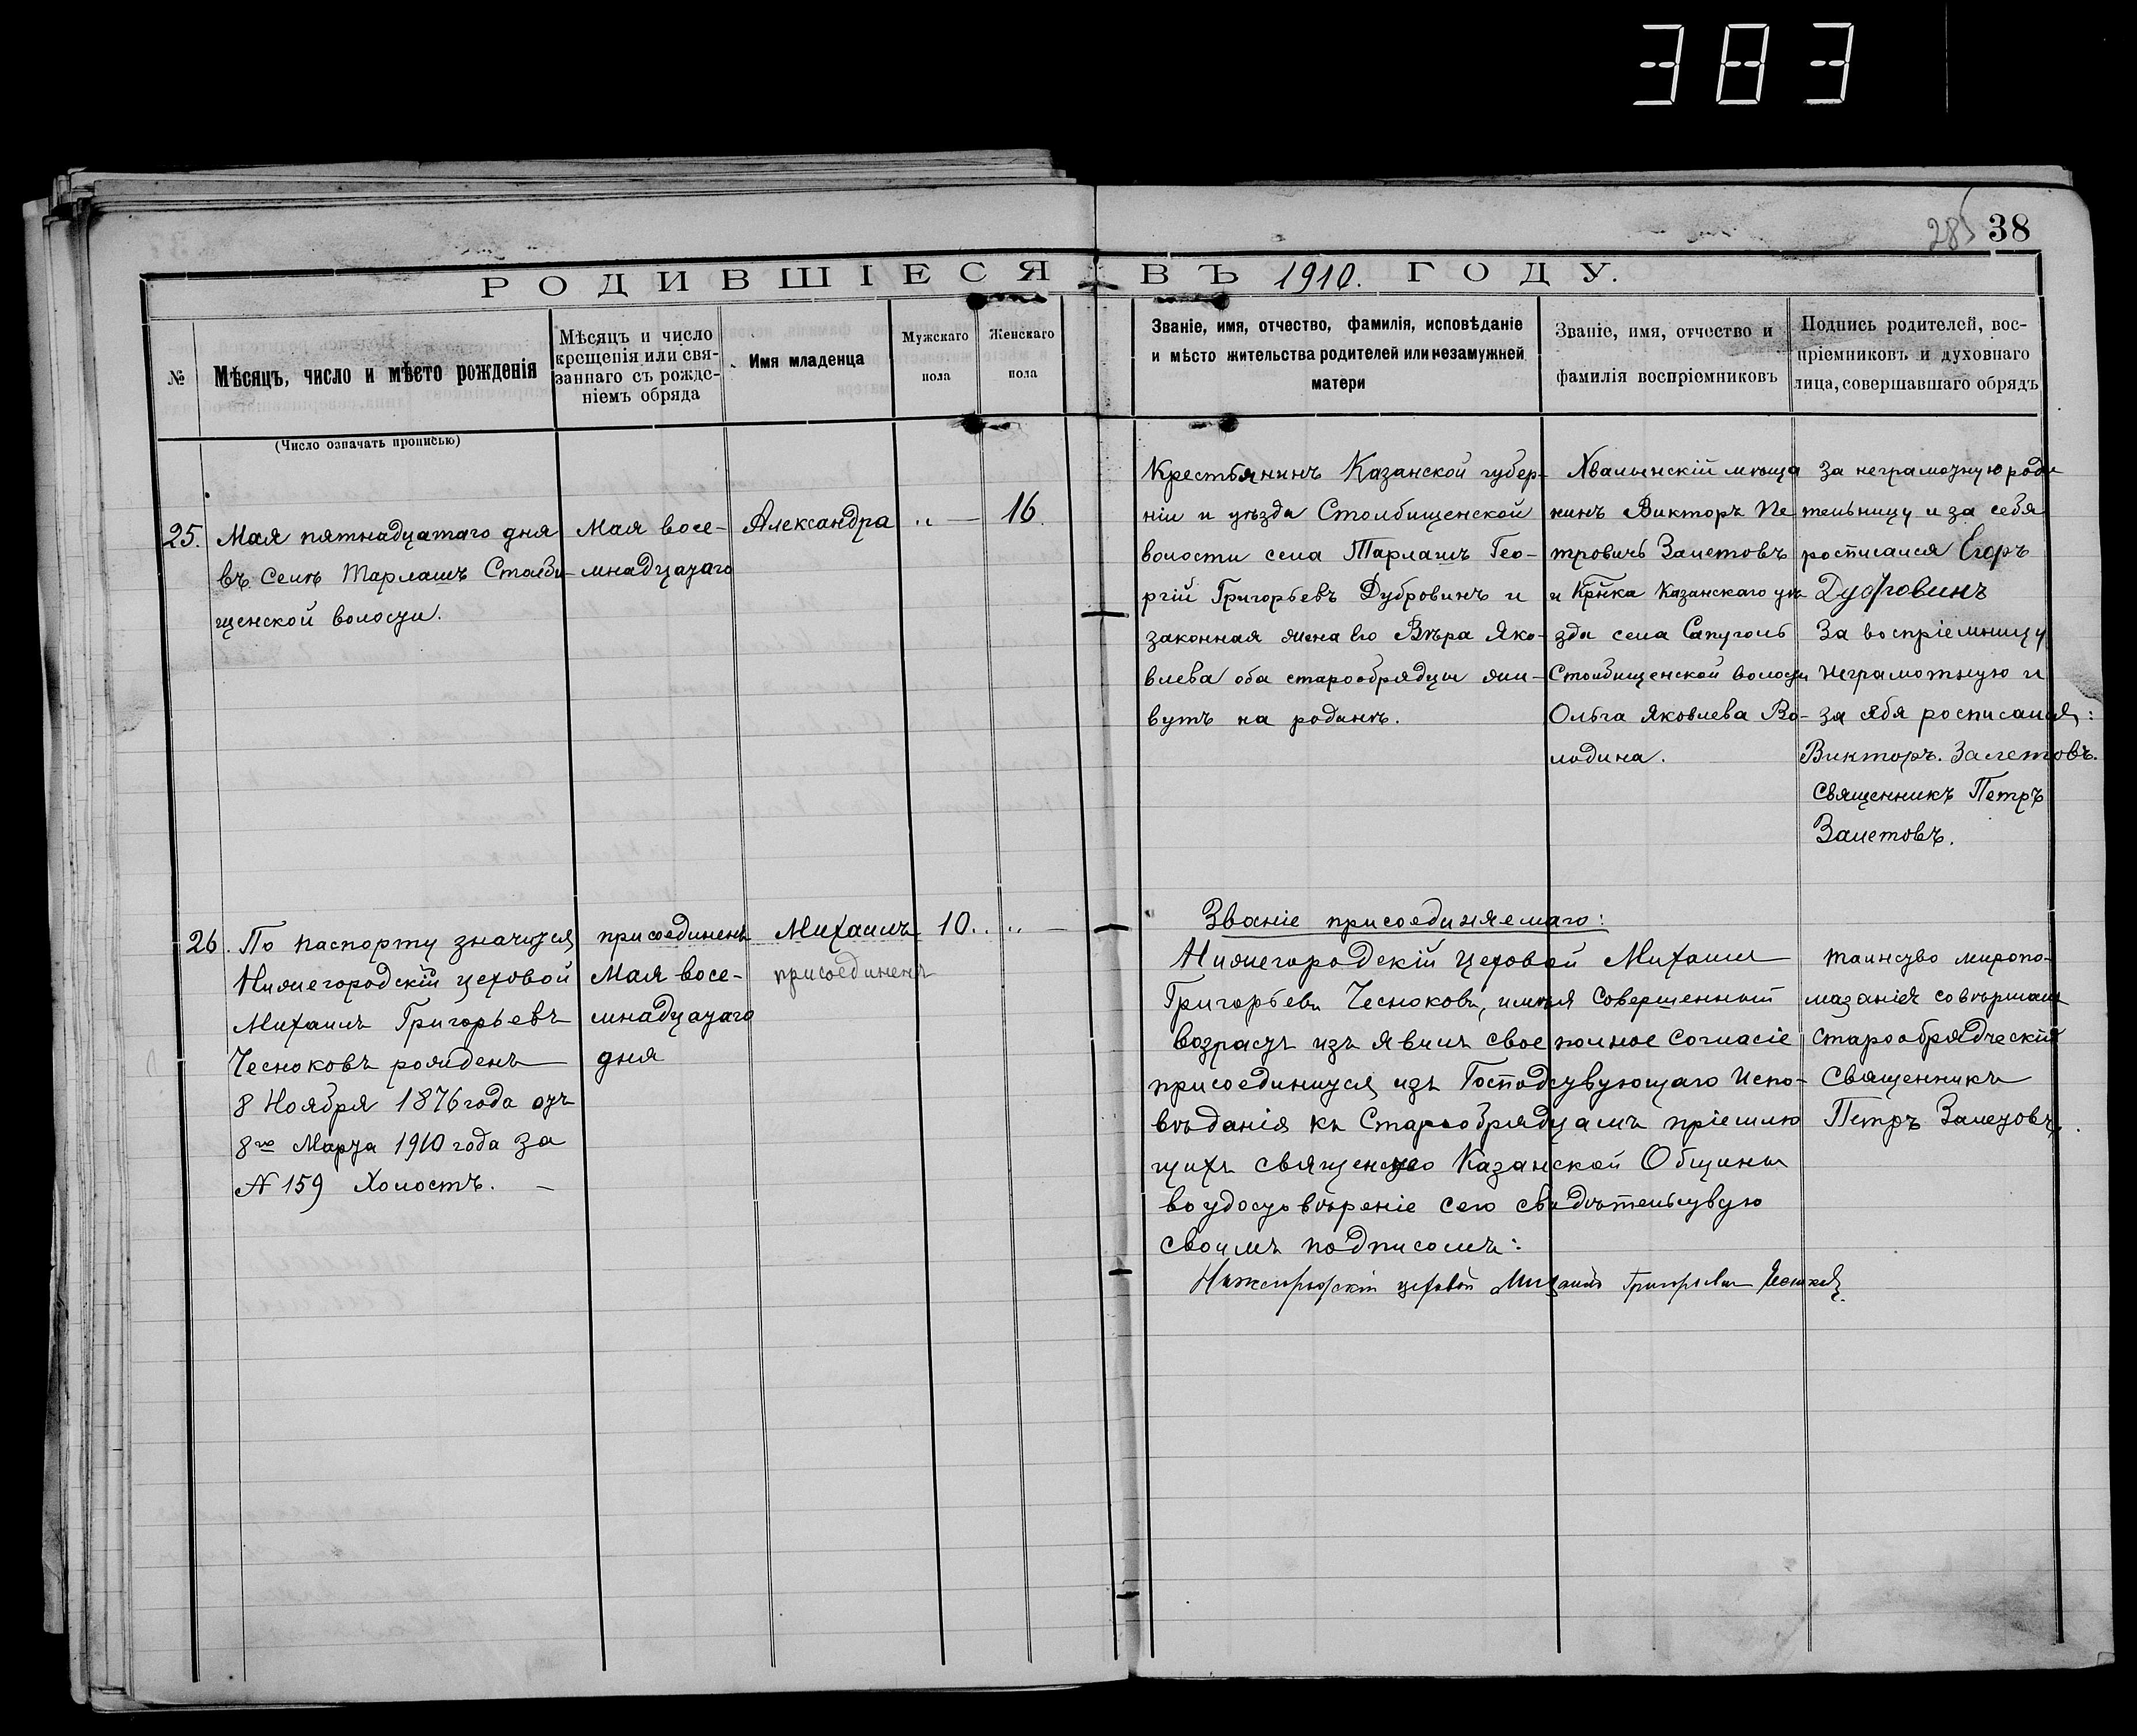 383
285 38
РОДИВШІЕСЯ ВЪ 1910. ГОДУ.
№
Мѣсяцъ, число и мѣсто рожденія
(Число означать прописью)
Мѣсяцъ и число
крещенія или свя-
заннаго съ рожде-
ніемъ обряда
Имя младенца
Мужскаго
пола
Женскаго
пола
Званіе, имя, отчество, фамилія, исповѣданіе
и мѣсто жительства родителей или незамужней
матери
Званіе, имя, отчество и
фамилія воспріемниковъ
Подпись родителей, вос-
пріемниковъ и духовнаго
лица, совершавшаго обрядъ
25.
Мая пятнадцатаго дня
въ селѣ Тарлашъ Столби-
щенской волости.
Мая восе-
мнадцатаго
Александра
„ —
16.
Крестьянинъ Казанской губер-
ніи и уѣзда Столбищенской
волости села Тарлашъ Гео-
ргій Григорьевъ Дубровинъ и
законная жена его Вѣра Яко-
влева оба старообрядцы жи-
вутъ на родинѣ.
Хвалынскій мѣща
нинъ Викторъ Пе-
тровичъ Залетовъ
и Крнка Казанскаго уѣ-
зда села Сапуголь
Столбищенской волости
Ольга Яковлева Во-
лодина.
За неграмотную роди
тельницу и за себя
росписался Егоръ
Дубровинъ
За воспріемницу
неграмотную и
за себя росписался:
Викторъ. Залетовъ.
Священникъ Петръ
Залетовъ.
26.
По паспорту значится
Нижегородскій цеховой
Михаилъ Григорьевъ
Чесноковъ рожденъ
8 Ноября 1876 года отъ
8го Марта 1910 года за
№ 159 Холостъ. —
присоединенъ
Мая восе-
мнадцатаго
дня
Михаилъ
присоединенъ
10.
„ —
Званіе присоединяемаго:
Нижегородскій Цеховой Михаилъ
Григорьевъ Чесноковъ, имѣя Совершенный
возрастъ изъ явилъ свое полное согласіе
присоединится изъ Господствующаго Испо-
вѣданія къ Старообрядцамъ пріемлю
щихъ священство Казанской Общины
во удостовѣреніе сего свидѣтельствую
своимъ подписомъ:
Нижегородскій цеховой Михаилъ Григорьевъ Чесноковъ.
Таинство миропо-
мазанія совѣршилъ
Старообрядческій
Священникъ
Петръ Залетовъ.